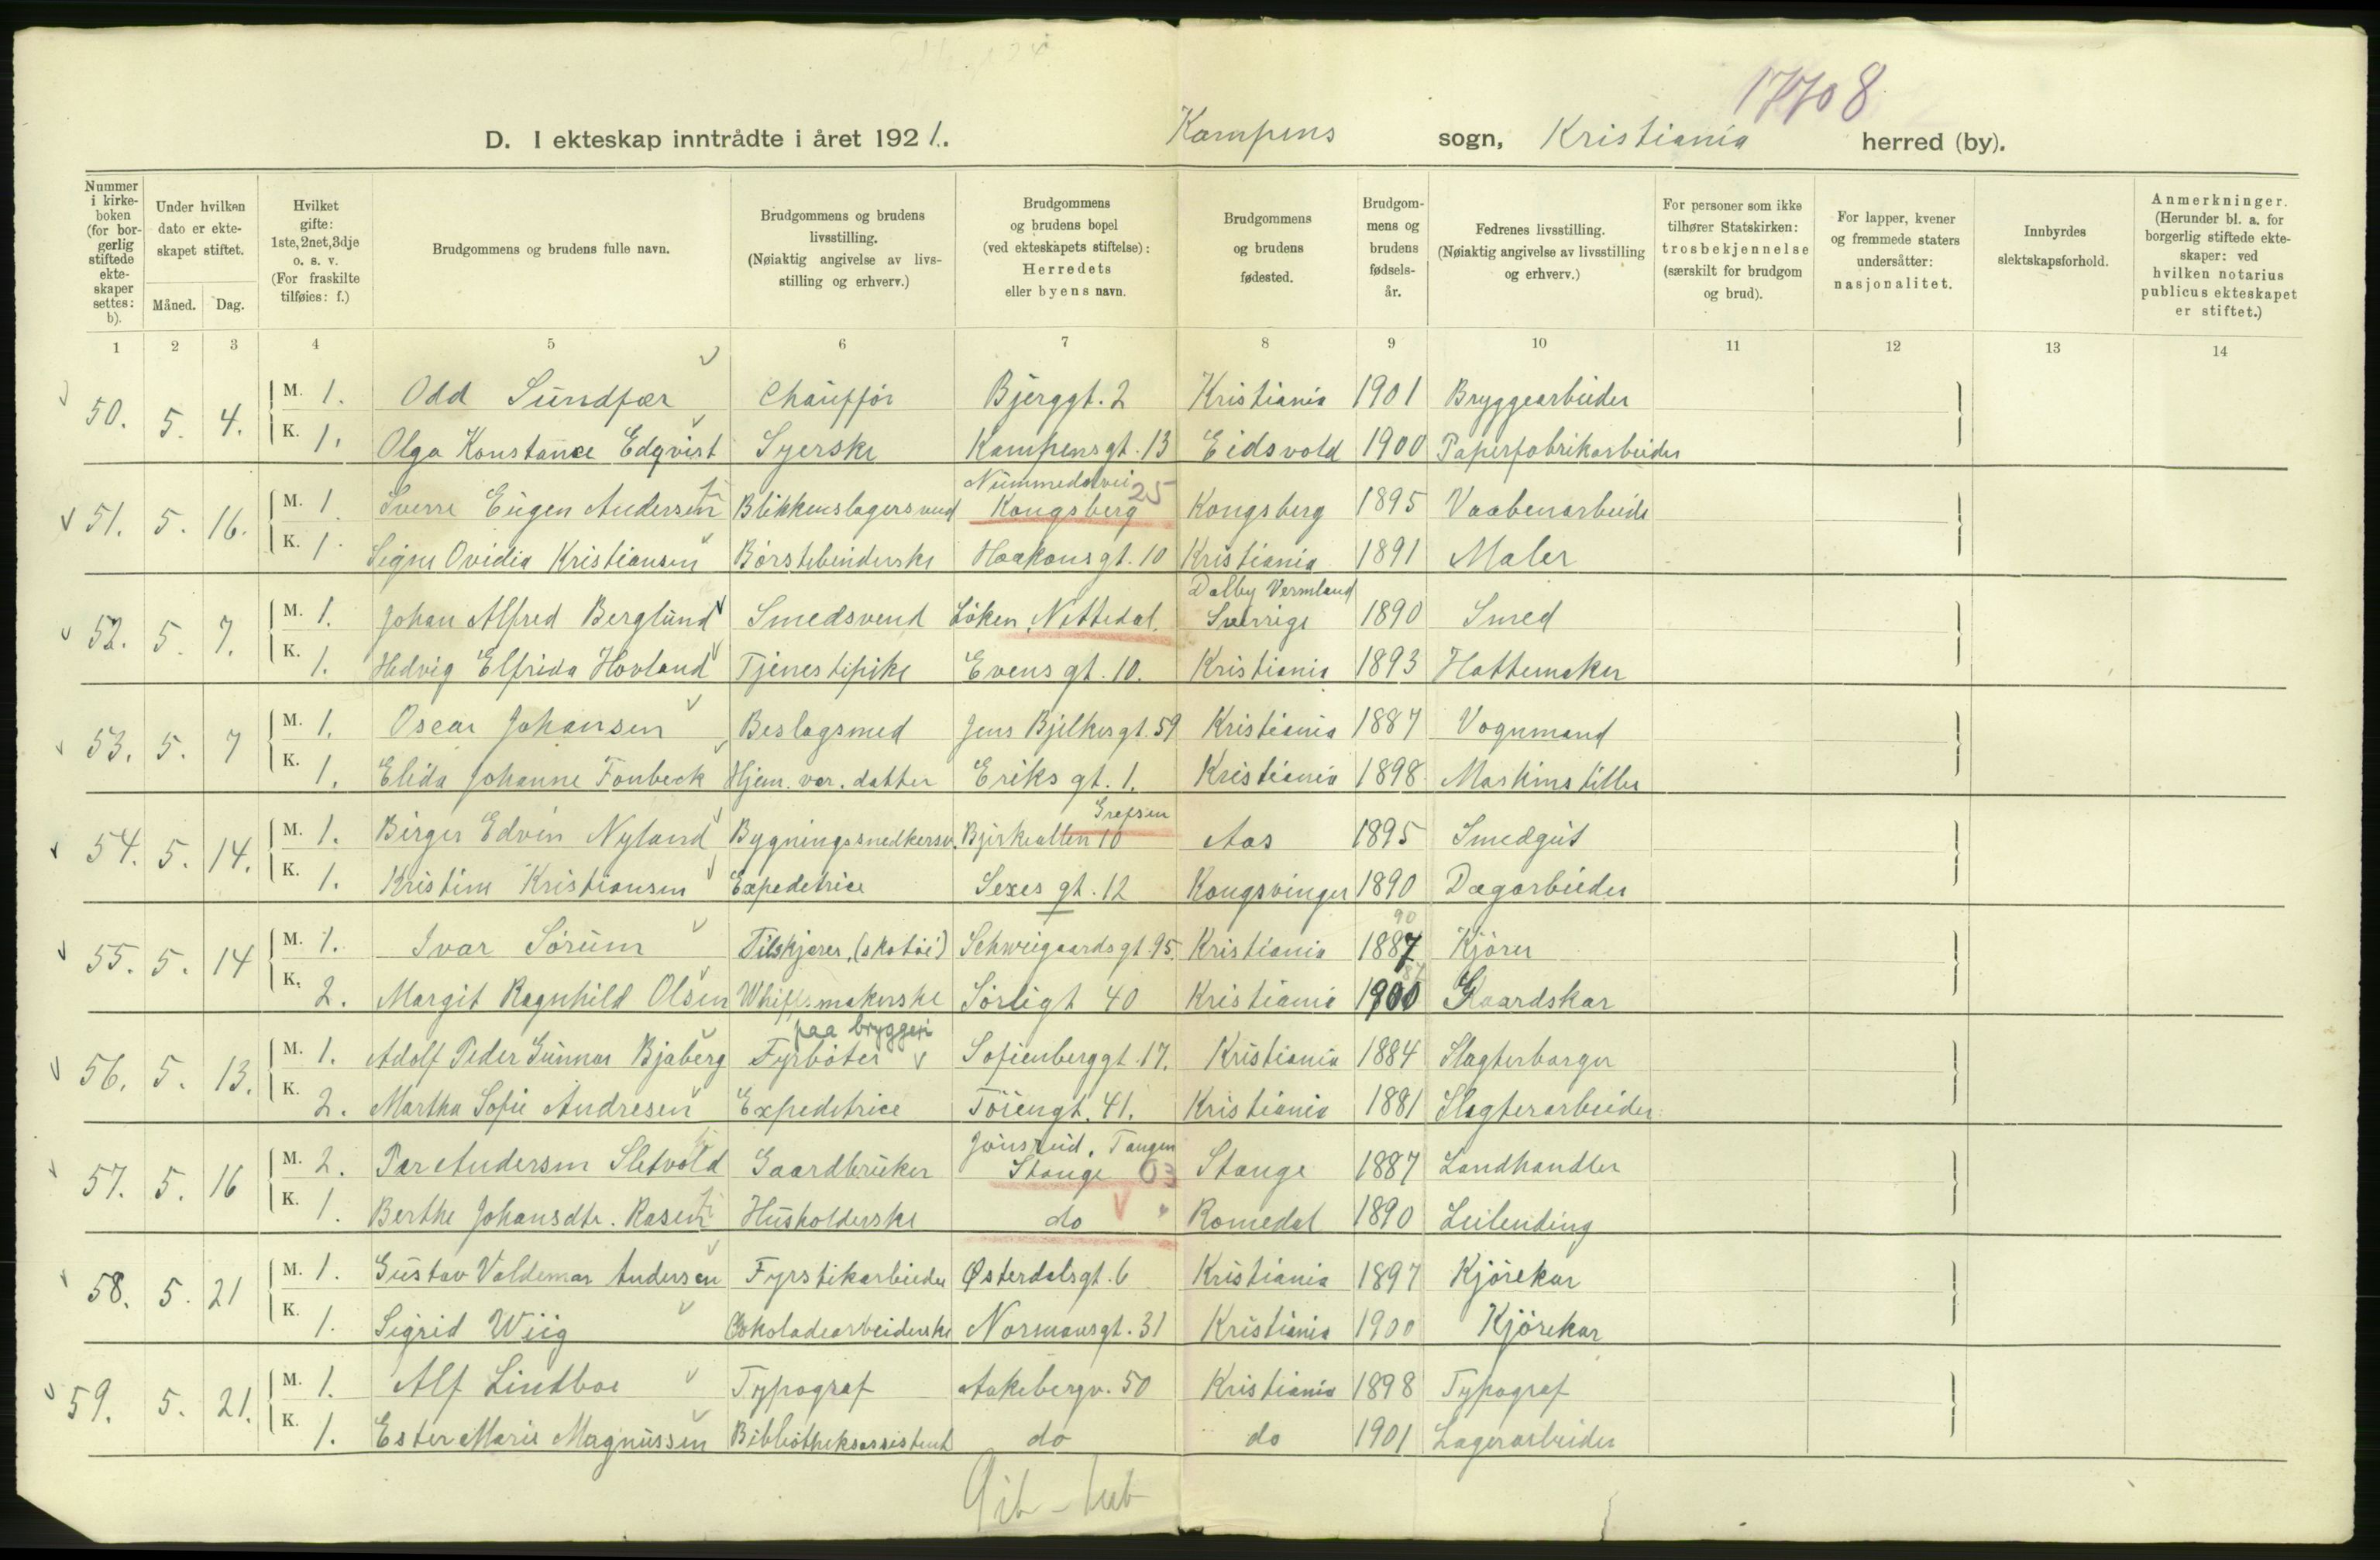 17708
D. I ekteskap inntrådte i året 1921. Kampens sogn, Kristiania herred (by).
Nummer i kirkeboken (for borgerlig stiftede ekteskaper settes: b).
Under hvilken dato er ekteskapet stiftet.
Måned. Dag.
Hvilket gifte: 1ste, 2net, 3dje o. s. v. (For fraskilte tilføies: f.)
Brudgommens og brudens fulle navn.
Brudgommens og brudens livsstilling. (Nøiaktig angivelse av livsstilling og erhverv.)
Brudgommens og brudens bopel (ved ekteskapets stiftelse): Herredets eller byens navn.
Brudgommens og brudens fødested.
Brudgommens og brudens fødselsår.
Fedrenes livsstilling. (Nøiaktig angivelse av livsstilling og erhverv.)
For personer som ikke tilhører Statskirken: trosbekjennelse (særskilt for brudgom og brud).
For lapper, kvener og fremmede staters undersåtter: nasjonalitet.
Innbyrdes slektskapsforhold.
Anmerkninger. (Herunder bl. a. for borgerlig stiftede ekteskaper: ved hvilken notarius publicus ekteskapet er stiftet.)
1 2 3 4 5 6 7 8 9 10 11 12 13 14
50. 5. 4. M. 1. Odd Sundfær Chauffør Bjerggt. 2 Kristiania 1901 Bryggearbeider
K. 1. Olga Konstance Edqvist Syerske Kampensgt. 13 Eidsvold 1900 Papirfabrikarbeider
Nummedalsvei 25
51. 5. 16. M. 1 Sverre Eugen Andersen Blikkenslagersvend Kongsberg Kongsberg 1895 Vaabenarbeide
K. 1. Signe Ovidia Kristiansen Børstebinderske Haakonsgt. 10 Kristiania 1891 Maler
Dalby Vermland
52. 5. 7. M. 1. Johan Alfred Berglund Smedsvend Løken, Nittedal. Sverrige 1890 Smed
K. 1. Hedvig Elfrida Hovland Tjenestepike Evensgt. 10. Kristiania 1893 Hattemaker
53. 5. 7 M. 1. Oscar Johansen Beslagsmed Jens Bjelkesgt. 59 Kristiania 1887 Vognmand
K. 1. Elida Johanne Fonbeck Hjem. vær. datter Eriks gt. 1. Kristiania 1898 Maskinstiller
Grefsen
54. 5. 14. M. 1. Birger Edvin Nyland Bygningssnedkersv. Bjerkealleen 10 Aas 1895 Smedgut
K. 1. Kristine Kristiansen Expeditrice Sexes gt. 12 Kongsvinger 1890 Dagarbeider
90
55. 5. 14 M. 1. Ivar Sørum Tilskjærer, (skotøi) Schweigaardsgt. 95. Kristiania 1887 Kjører
K. 2. Margit Ragnhild Olsen Sørligt 40 Kristiania 1900 Gaardskar
paa bryggeri
56. 5. 13. M. 1. Adolf Peder Gunnar Bjaberg Fyrbøter Sofienberggt. 17. Kristiania 1884 Slagterborger
K. 2. Martha Sofie Andresen Expeditrice Tøiengt. 41. Kristiania 1881 Slagterarbeider
Jønsrud, Tangen
57. 5. 16 M. 2. Per Andersen Sletvold Gaardbruker Stange 03 Stange 1887 Landhandler
K. 1. Berthe Johansdtr. Rasen Husholderske do Romedal 1890 Leilending
58. 5. 21 M. 1. Gustav Valdemar Andersen Fyrstikarbieder Østerdalsgt. 6 Kristiania 1897 Kjørekar
K. 1. Sigrid Wiig Cokoladearbeiderske Normansgt. 31 Kristiania 1900 Kjørekar
59. 5. 21. M. 1. Alf Lindboe Typograf Aakebergv. 50 Kristiania 1898 Typograf
K. 1. Ester Marie Magnussen Bibliotheksassistent do do 1901 Lagerarbeider